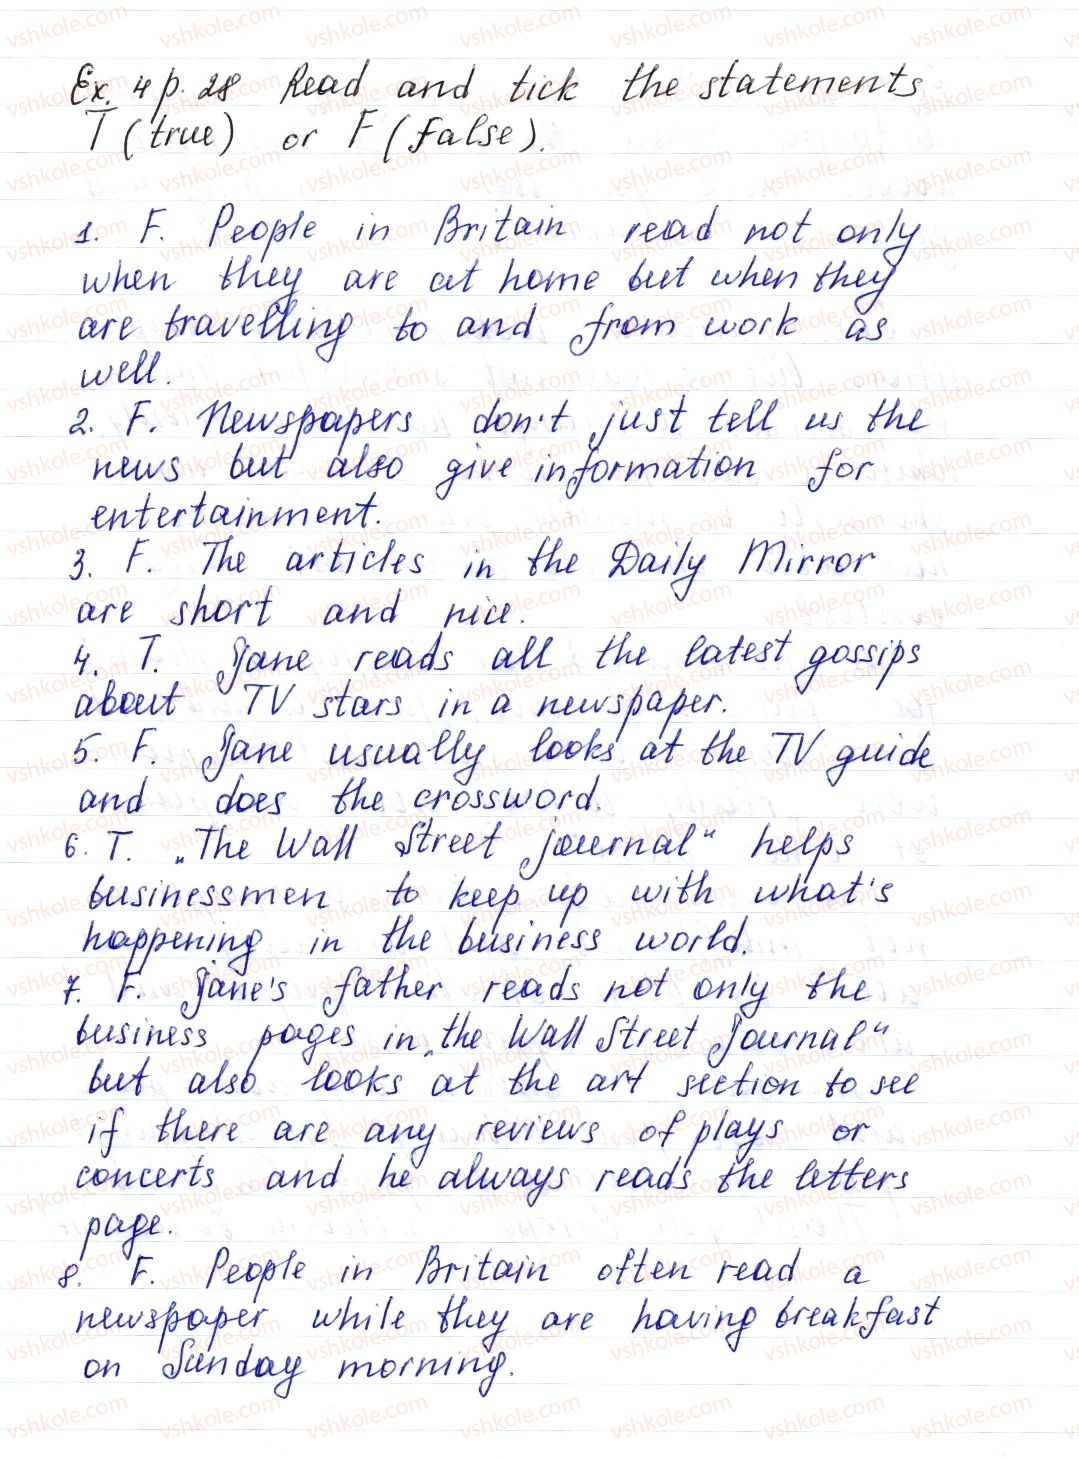 Ex. 4 p. 28 Read and tick the statements
T (true) or F (false).
1. F. People in Britain read not only
when they are at home but when they
are travelling to and from work as
well.
2. F. Newspapers don't just tell us the
news but also give information for
entertainment.
3. F. The articles in the Daily Mirror
are short and nice.
4. T. Jane reads all the latest gossips
about TV stars in a newspaper.
5. F. Jane usually looks at the TV guide
and does the crossword.
6. T. „The Wall Street journal“ helps
businessmen to keep up with what's
happening in the business world.
7. F. Jane's father reads not only the
business pages in „the Wall Street Journal“
but also looks at the art section to see
if there are any reviews of plays or
concerts and he always reads the letters
page.
8. F. People in Britain often read a
newspaper while they are having breakfast
on Sunday morning.